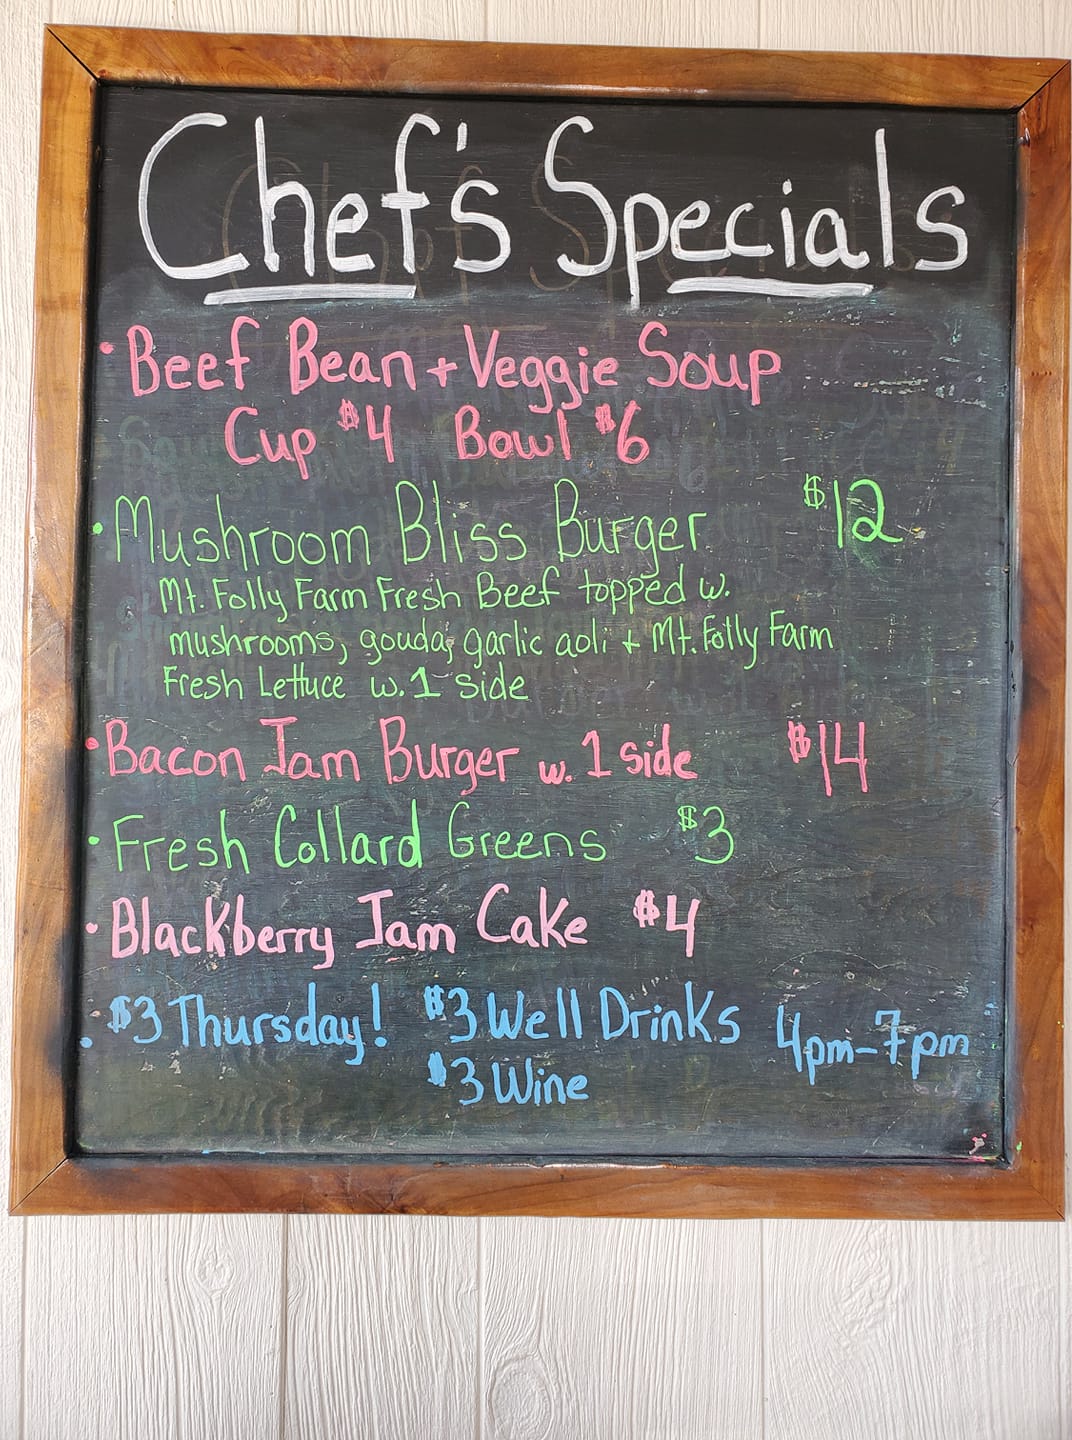 Chef's Specials
• Beef Bean + Veggie Soup
Cup $4 Bowl $6
• Mushroom Bliss Burger $12
Mt. Folly Farm Fresh Beef topped w.
mushrooms, gouda, garlic aoli + Mt. Folly Farm
Fresh Lettuce w. 1 side
• Bacon Jam Burger w. 1 side $14
• Fresh Collard Greens $3
• Blackberry Jam Cake $4
• $3 Thursday! $3 Well Drinks 4pm-7pm
$3 Wine